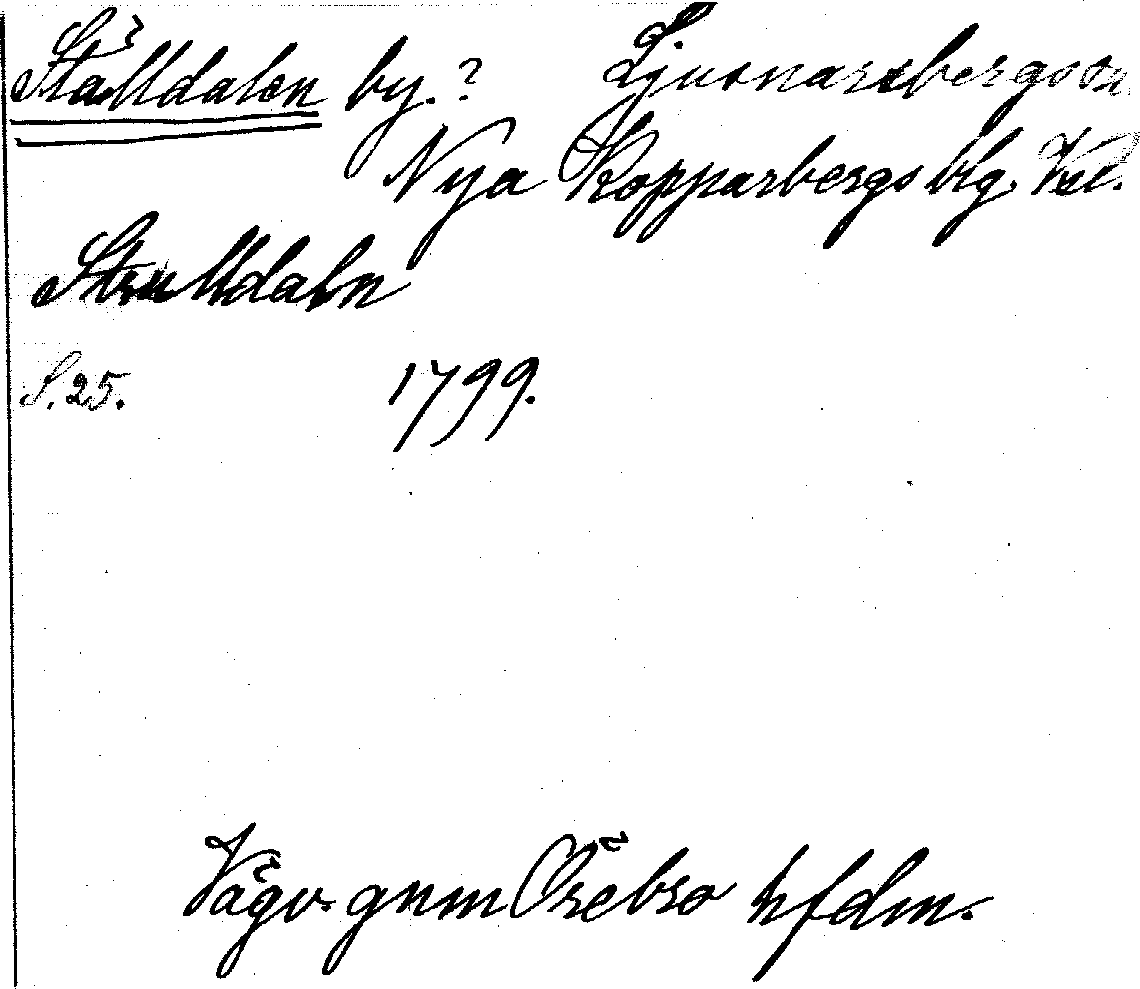 Ställdalen by.?
Ljusnarsbergs sn
Nya Kopparbergs blg. Vstl.
Strulldaln
S. 25. 1799.
Vägv. gnm Örebro hfdm.